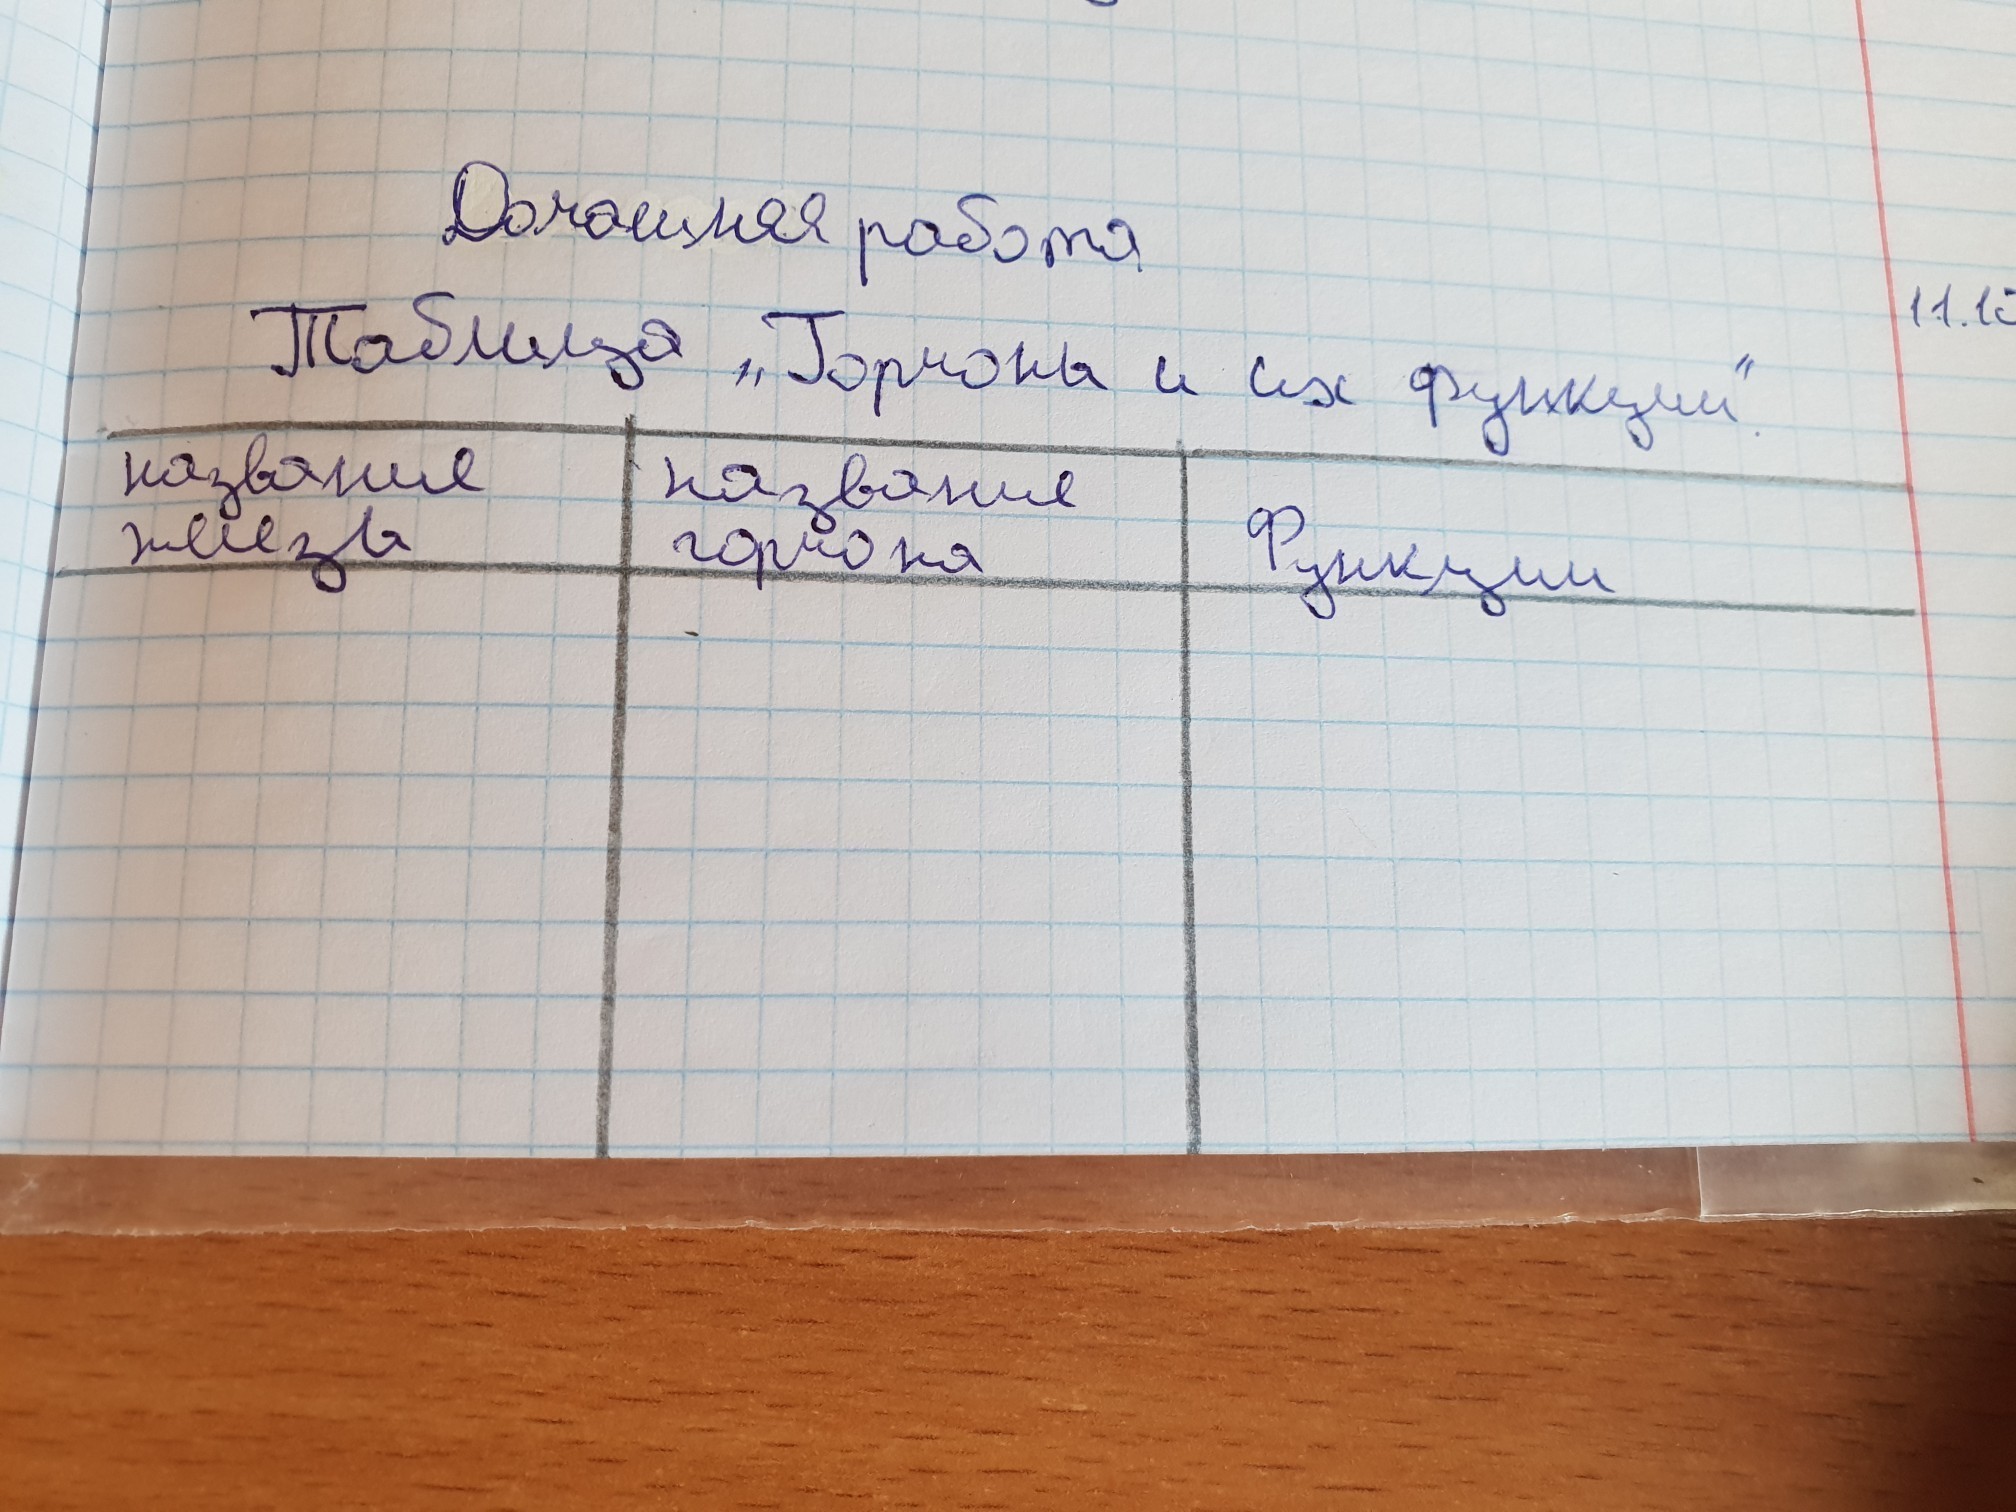 Домашняя работа
Таблица „Гормоны и их функции".
название железы
название гормона
Функции